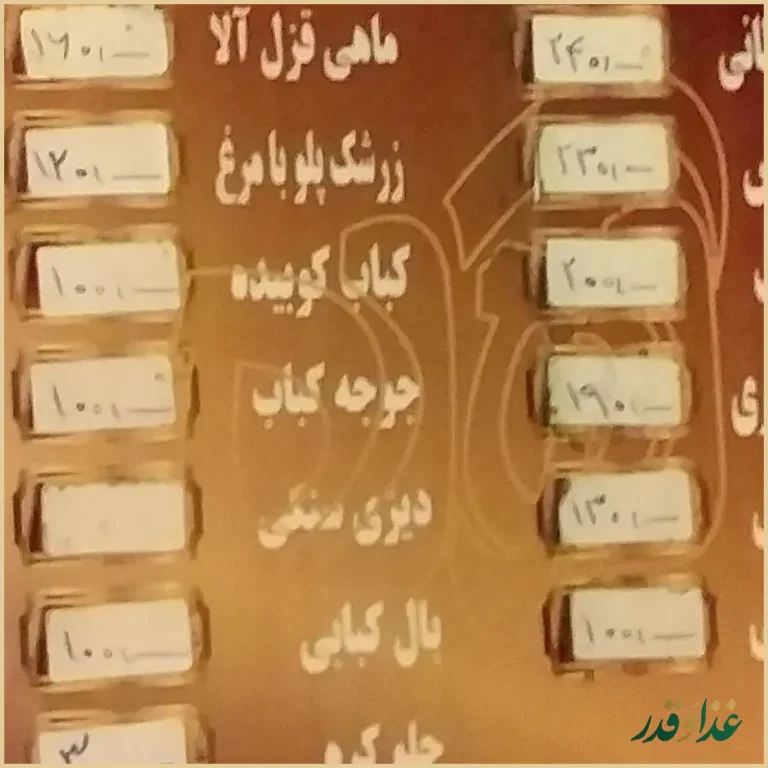 ماهی قزل آلا ۱۶۰,۰
زرشک پلو با مرغ ۱۲۰,۰
کباب کوبیده ۱۰۰,۰
جوجه کباب ۱۰۰,۰
دیزی سنگی
بال کبابی ۱۰۰,۰
چلو کره ۳
۲۴۰,۰
۲۳۰,۰
۲۰۰,۰
۱۹۰,۰
۱۳۰,۰
۱۰۰,۰
غذا و قدر